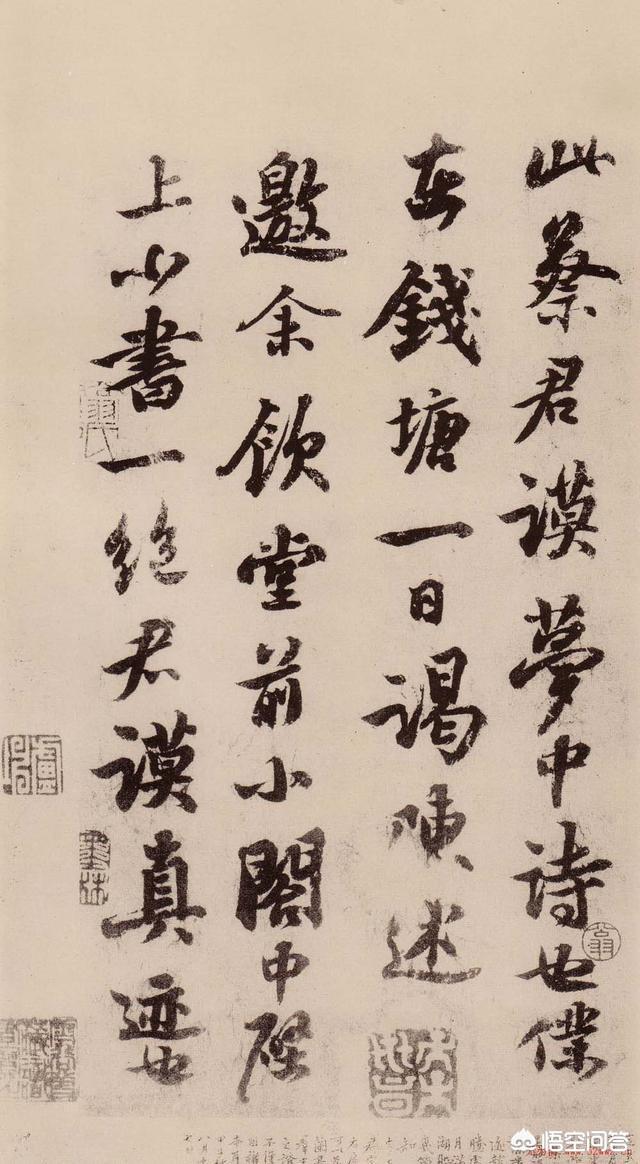 此蔡君謨夢中詩也僕
在錢塘一日謁陳述
邀余飲堂前小閣中壁
上小書一絕君謨真迹也
悟空问答